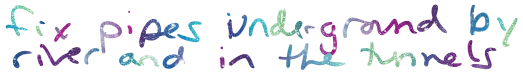 fix pipes underground by
river and in the tunnels